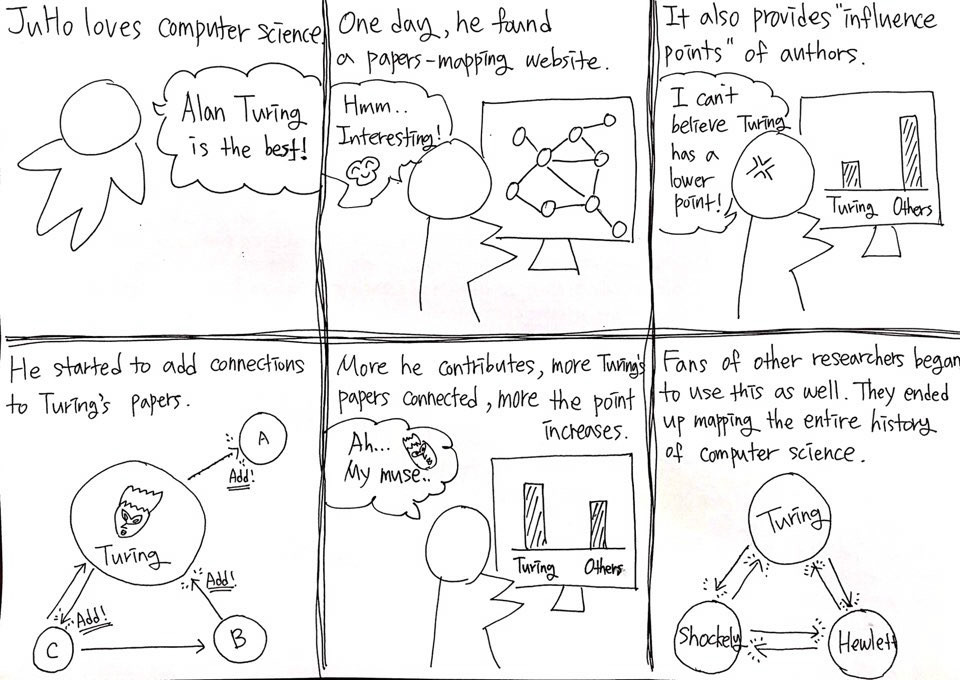 JuHo loves computer science
Alan Turing
is the best!
One day, he found
a papers-mapping website.
Hmm..
Interesting!
It also provides "influence
points" of authors.
I can't
believe Turing
has a
lower
point!
Turing Others
He started to add connections
to Turing's papers.
A
Add!
Turing
Add!
Add!
C
B
More he contributes, more Turing's
papers connected, more the point
increases.
Ah...
My muse..
Turing Others
Fans of other researchers began
to use this as well. They ended
up mapping the entire history
of computer science.
Turing
Shockely
Hewlett